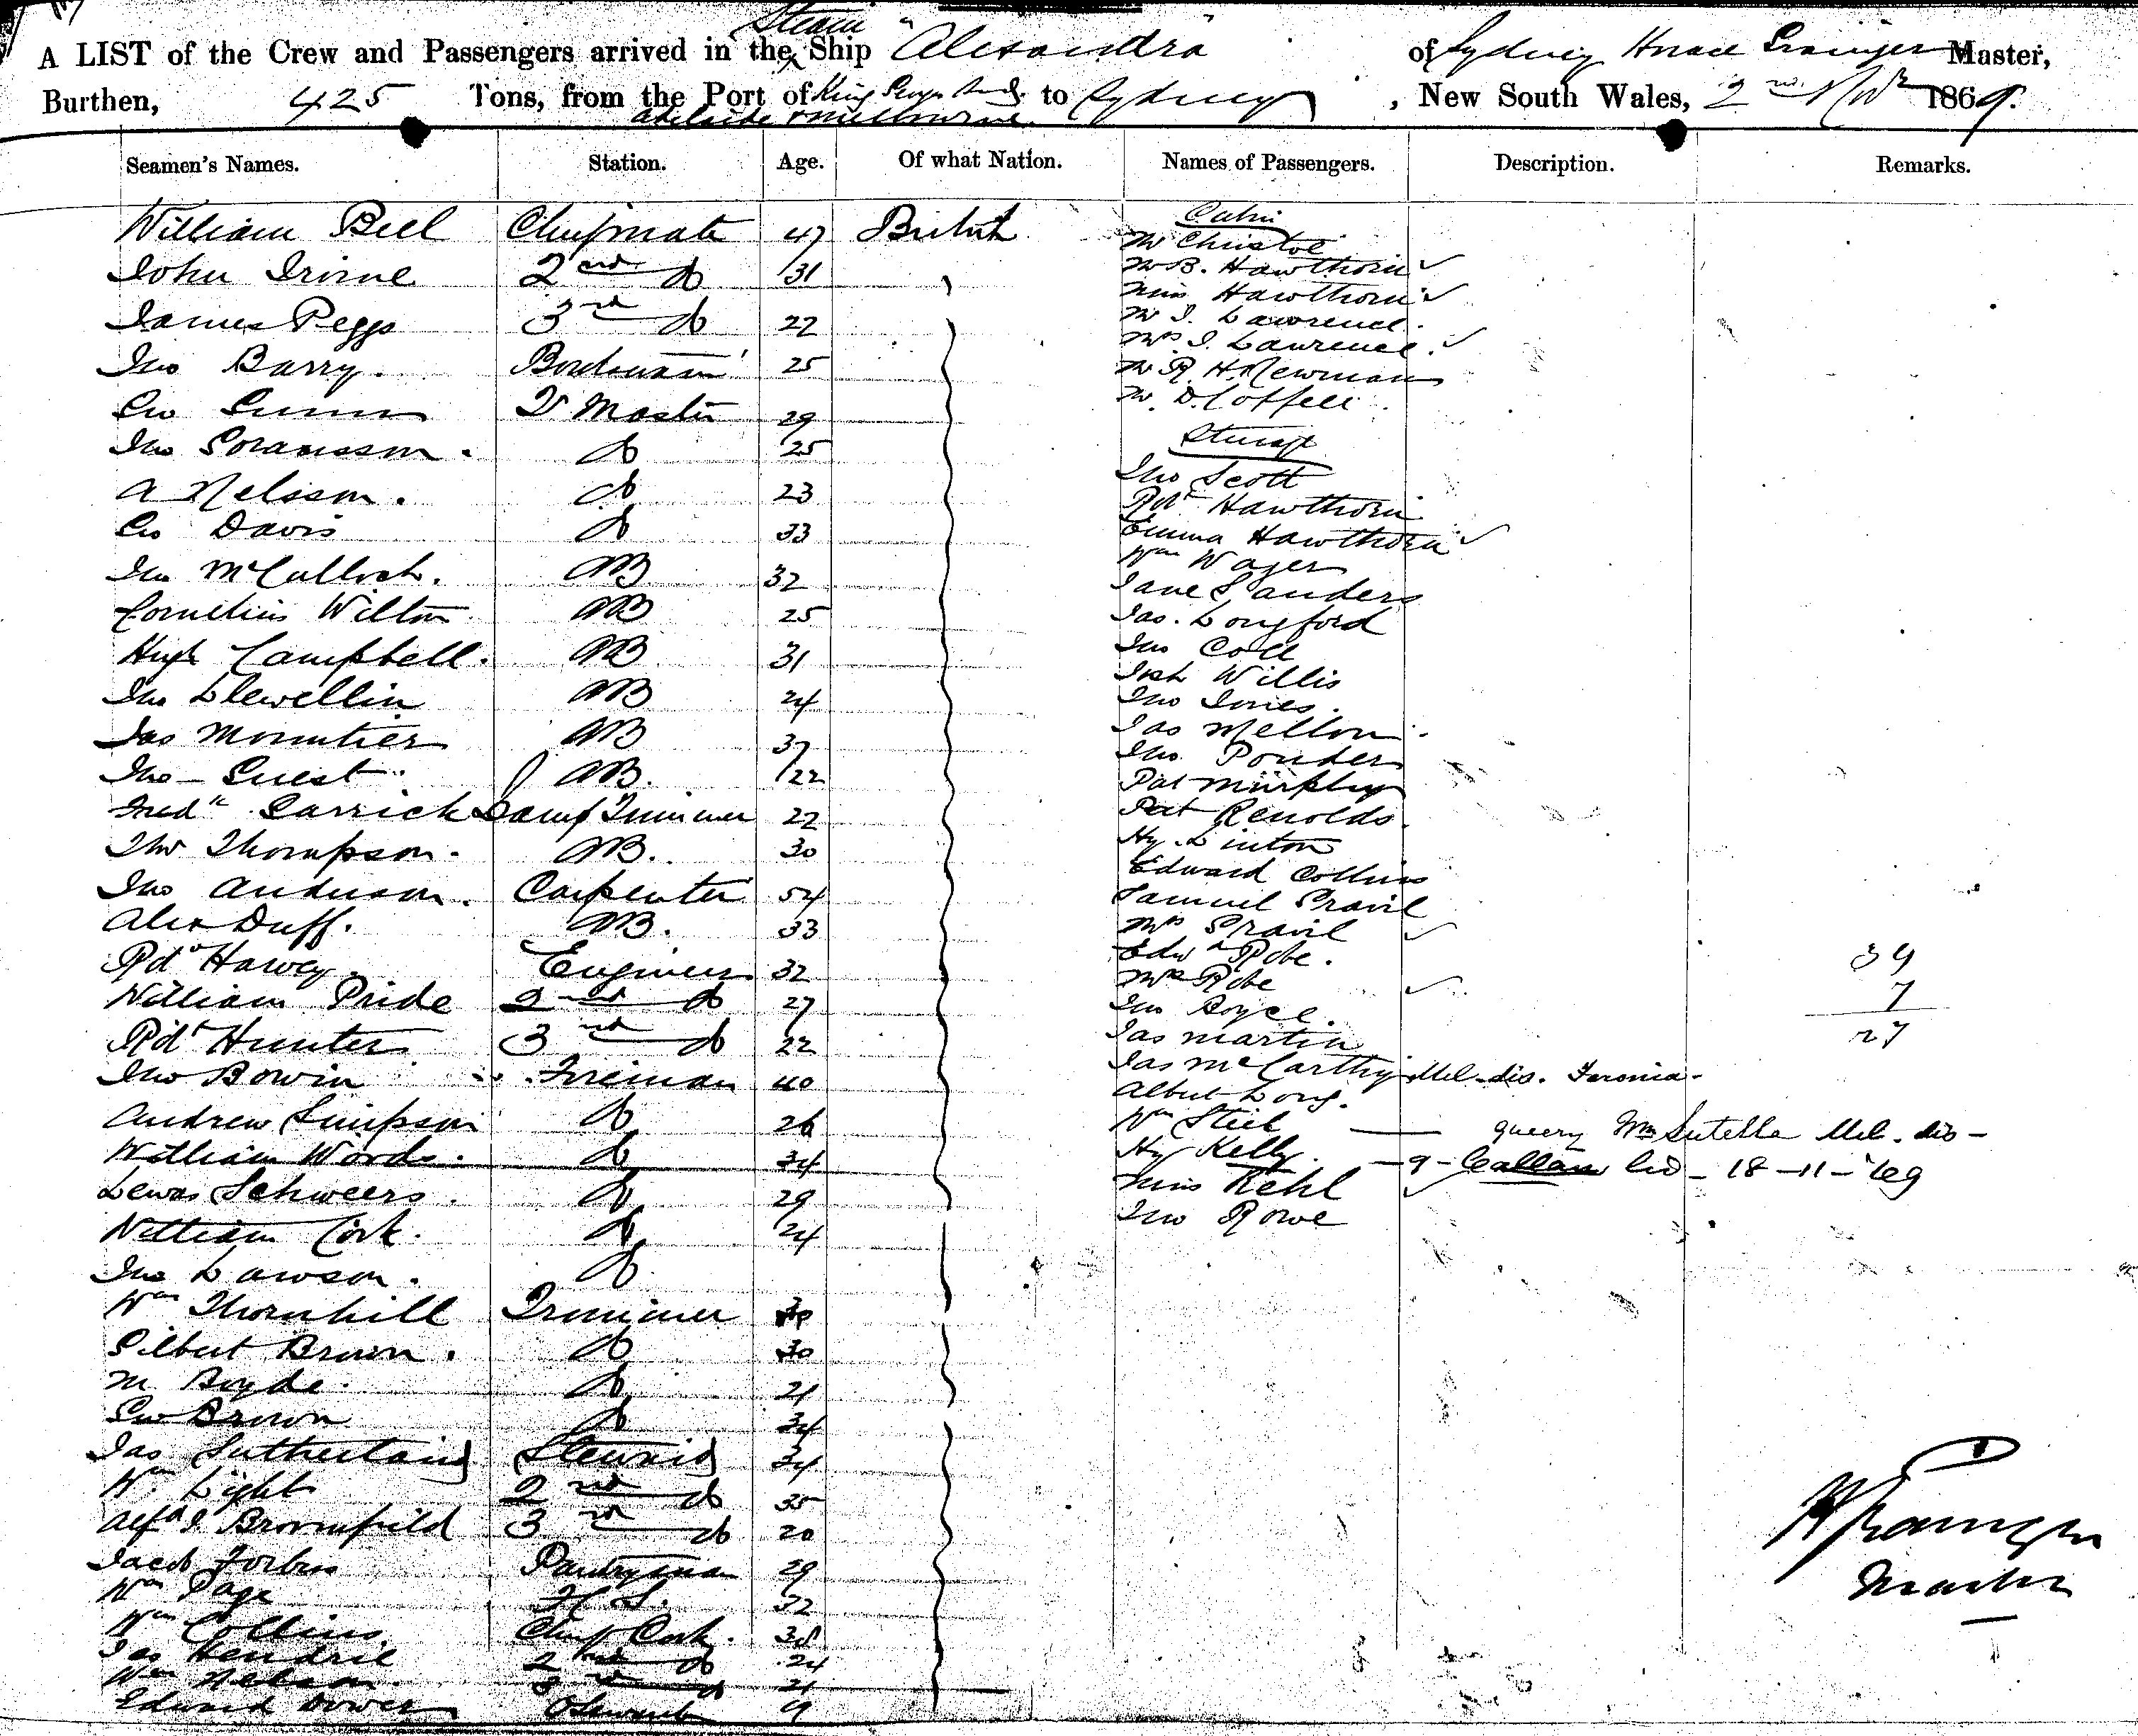 Steam
A LIST of the Crew and Passengers arrived in the Ship "Alexandra" of Sydney Horace Master,
Burthen, 425 Tons, from the Port of King to Sydney, New South Wales, 2nd Novr 1869.
Adelaide & Melbourne
Seamen's Names. Station. Age. Of what Nation. Names of Passengers. Description. Remarks.
Cabin
William Bell Chiefmate 47 British
Mr Christoe
John Irvine 2nd do 31
Mr B. Hawthorn
Miss Hawthorn
James Peggs 3rd do 22
Mr J. Lawrence
Mrs J. Lawrence
Jno Barry. 25
Mr R. H. Newman
Geo Gunn Qr Master 29
Mr D. Coffell
Steerage
Jno do 25
Jno Scott
A Nelson. do 23
Robt Hawthorn
Geo Davis do 33
Emma Hawthorn
Wm Wager
Jno McCulloch. AB 32
Jane Sanders
Cornelius Wilton AB 25
Jas. Longford
Hugh Campbell. AB 31
Jno Coll
Jno Llewellin AB 24
Willis
Jno Jones.
Jas Mountier AB 37
Jas Mellon
Jno Ponder
Jno Guest AB. 22
Pat Murphy
Fredk Garrick Lamp Trimmer 22
Pat Renolds.
Jno Thompson. AB. 30
Hy. Linton
Edward Collins
Jno Anderson. Carpenter 54
Samuel Pravil
Alex Duff. AB. 33
Mrs Pravil
Edwd Robe.
Rd Harvey Engineer 32
39
Mrs Robe
William Pride 2nd do 27
7
Jno Boyce.
27
Robt Hunter 3rd do 22
Jas Martin
Jno Bowin Fireman 40
Jas McCarthy Mel. dis. Feronia.
Albert Long.
Andrew Simpson do 26
Wm Stiel — queery Wm Sutella Mel. dis —
William Words. do 34
Hy Kelly. — 9 - Callan Geo - 18-11-'69
Lewas Schweers. do 29
Miss Kehl
William Cork. do 24
Jno Rowe
Jno Lawson. do
Wm Thornhill Trimmer
Gilbert Brown. do 30
M Boyde. do 21
Geo Brown do 34
Jas Sutherland Steward 34
Wm Light 2nd do 35
Alfd J. Bromfield 3rd do 20
Jacob Forbes Pantryman 29
Wm Page F C S. 32
Wm Collins Chief Cook. 38
Jas Hendrie 2nd do 24
Wm Nelson 3rd do 21
Edward Bower
Master